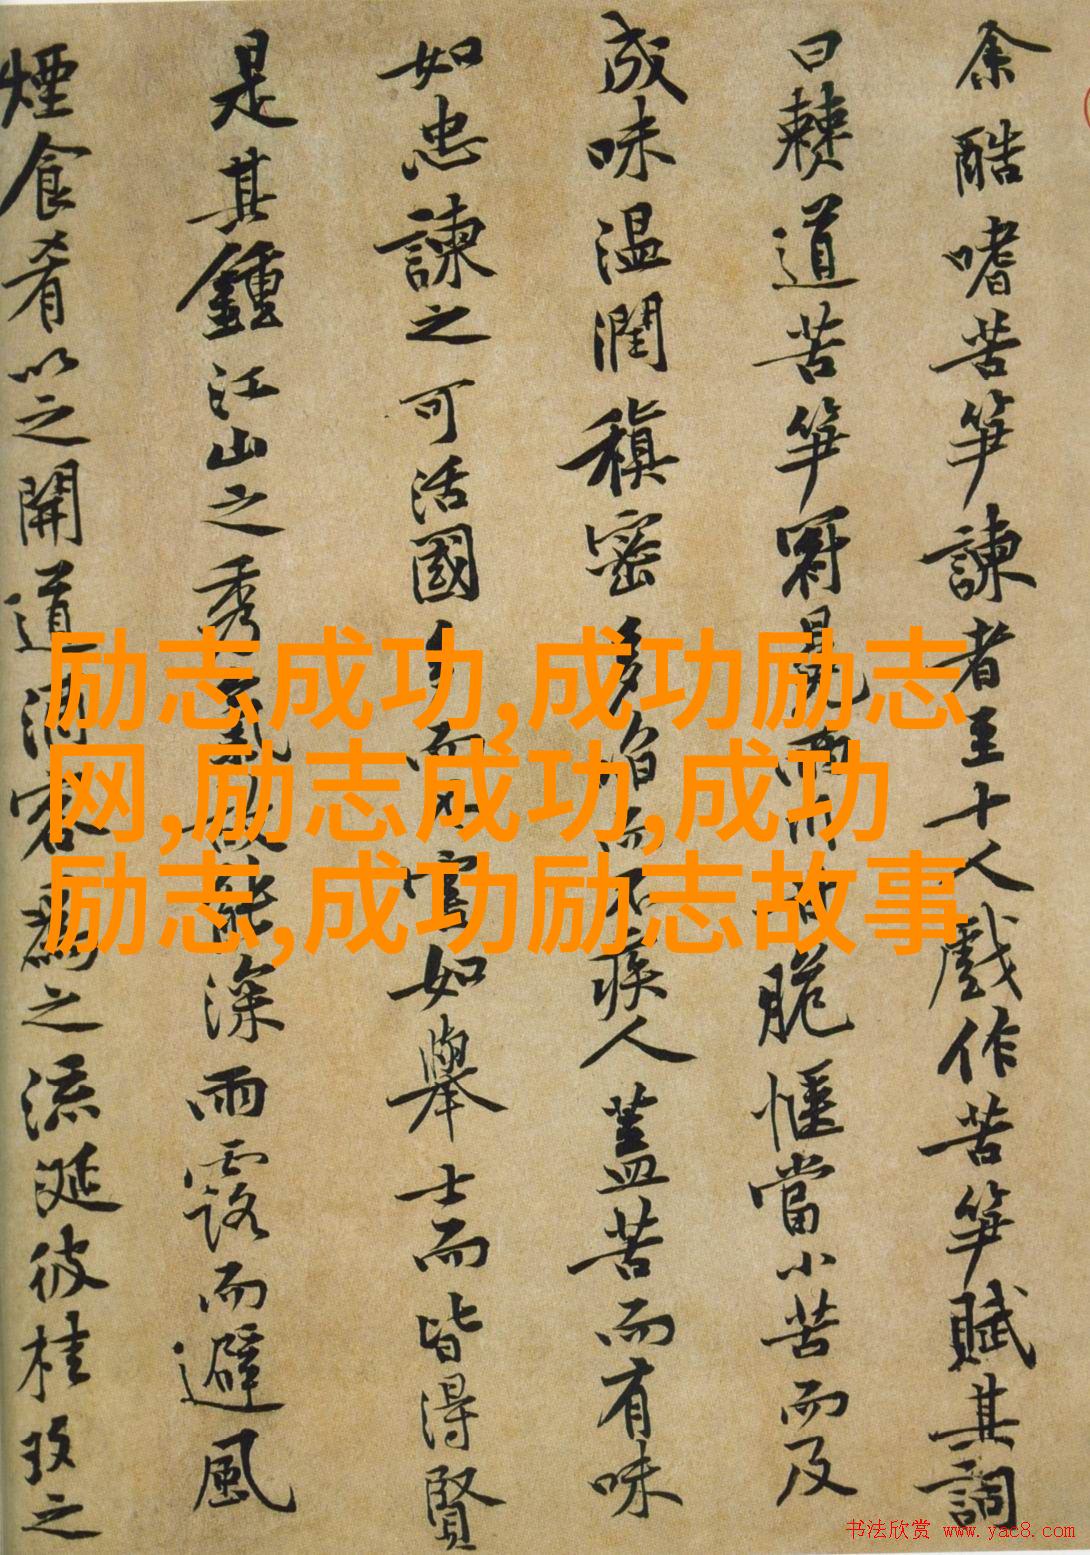 余酷嗜苦笋諫者至十人戲作苦笋賦其詞
曰僰道苦笋冠冕兩川甘脆愜當小苦而及
成味温潤稹密多啗而不疾人蓋苦而有味
如忠諫之可活國多而不害如舉士而皆得賢
是其鍾江山之秀氣故能深雨露而避風
煙食肴以之開道酒客爲之流涎彼桂玫之
励志成功,成功励志
网,励志成功,成功
励志,成功励志故事
书法欣赏 www.yac8.com